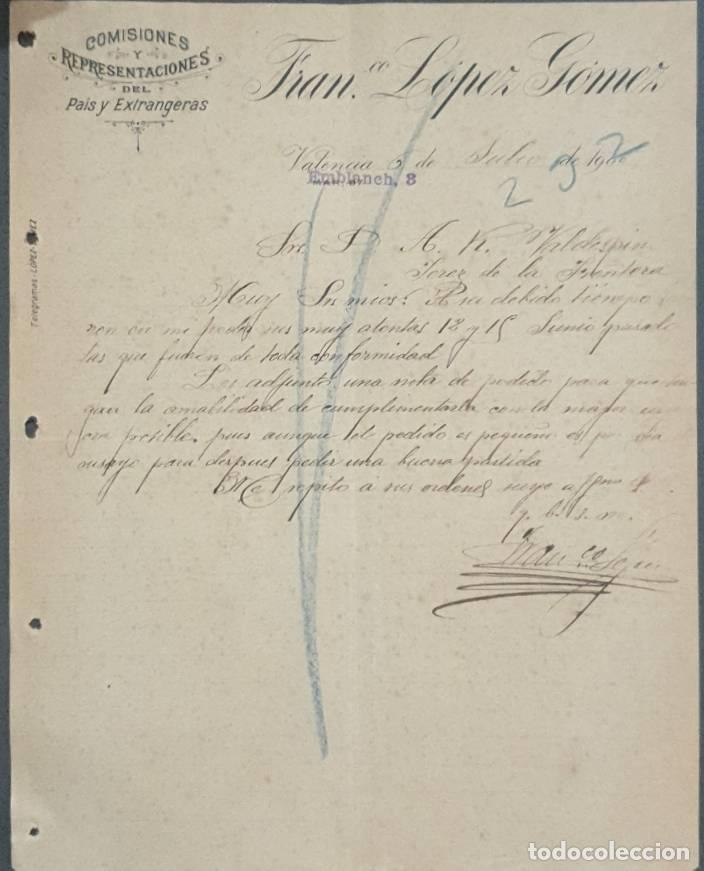 COMISIONES
Y
REPRESENTACIONES
DEL
País y Extrangeras
Fran.co López Gómez
Valencia 3 de Julio de 190
Emblanch, 3
Telegramas - LÓPEZ
Sr. D A. R. Valdespin
Jerez de la Frontera
Muy Sres mios: A su debido tiempo
en mi poder sus muy atentas 12 y 15 Junio pasado
las que fueron de toda conformidad
Les adjunto una nota de pedido para que
la amabilidad de cumplimentarla con la mayor
posible, pues aunque el pedido es pequeño es por
ensayo para despues pedir una buena partida
Me repito á sus ordenes suyo
q. b. s. m.
Franco
todocoleccion.net